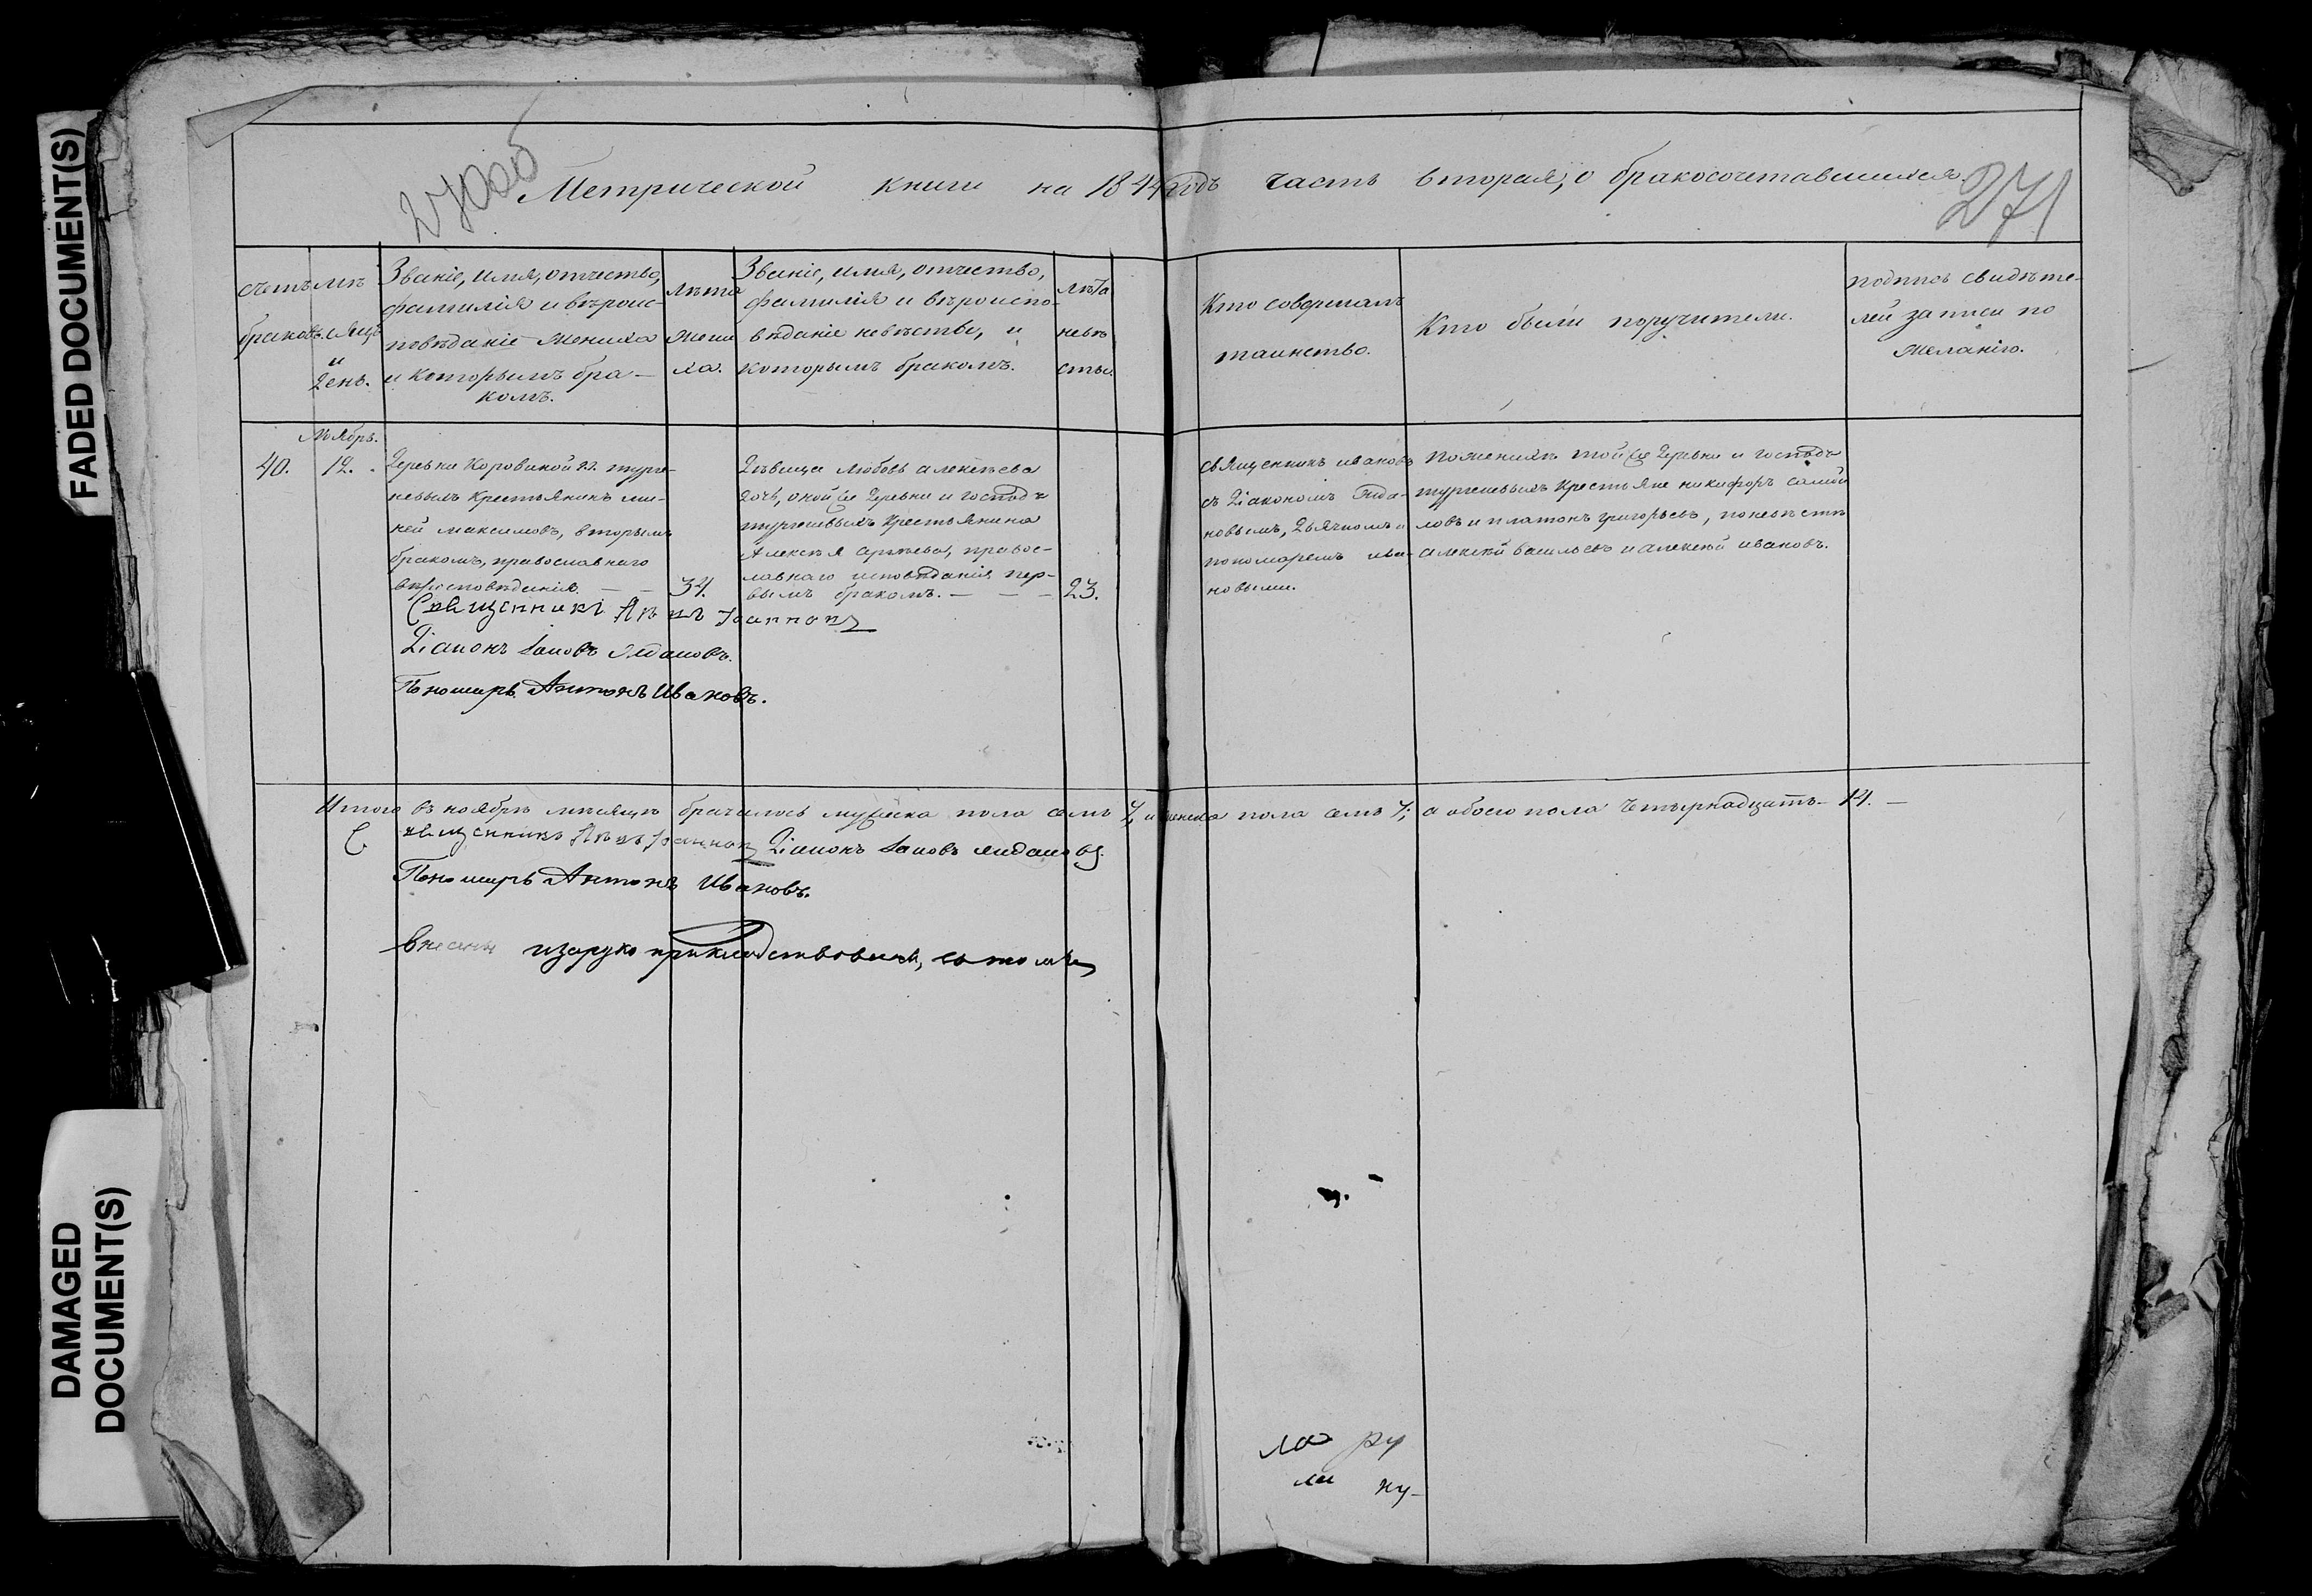 FADED DOCUMENT(S)
DAMAGED
DOCUMENT(S)
270об
271
Метрической книги на 1844 годъ часть вторая, о бракосочетавшихся.
счетъ
браковъ.
мѣсяцъ
и
день.
Званіе, имя, отчество,
фамилія и вѣроис-
повѣданіе жениха
и которымъ бра-
комъ.
лѣта
жени
ха.
Званіе, имя, отчество,
фамилія и вѣроиспо-
вѣданіе невѣсты, и
которымъ бракомъ.
лѣта
невѣ
сты.
Кто совершалъ
таинство.
Кто были поручители.
подпись свидѣте-
лей записи по
желанію.
Ноябрь.
40.
12.
Деревни Коровиной гг. турге-
невыхъ крестьянинъ ми-
ней максимовъ, вторымъ
бракомъ, православнаго
вѣроисповѣданія.
34.
Дѣвица любовь алексѣева
дочь, оной же деревни и господъ
тургеневыхъ крестьянина
Алексѣя православ-
лавнаго исповѣданія, пер-
вымъ бракомъ.
23.
священникъ ивановъ
съ діакономъ
новымъ, дьячкомъ и
пономаремъ ива-
новыми.
пожениху той же деревни и господъ
тургеневыхъ крестьяне никифоръ самой
ловъ и платонъ григорьевъ, по невѣстѣ
алексѣй васильевъ и алексѣй ивановъ.
Священникъ Іоанновъ
Діаконъ Іаковъ
Пономарь Антонъ Ивановъ.
Итого въ ноябрѣ мѣсяцѣ брачилось мужеска пола семь 7, и женска пола семь 7; а обоего пола четырнадцать. 14.
Священникъ Іоанновъ Діаконъ Іаковъ
Пономарь Антонъ Ивановъ.
ло ру
ли ну-